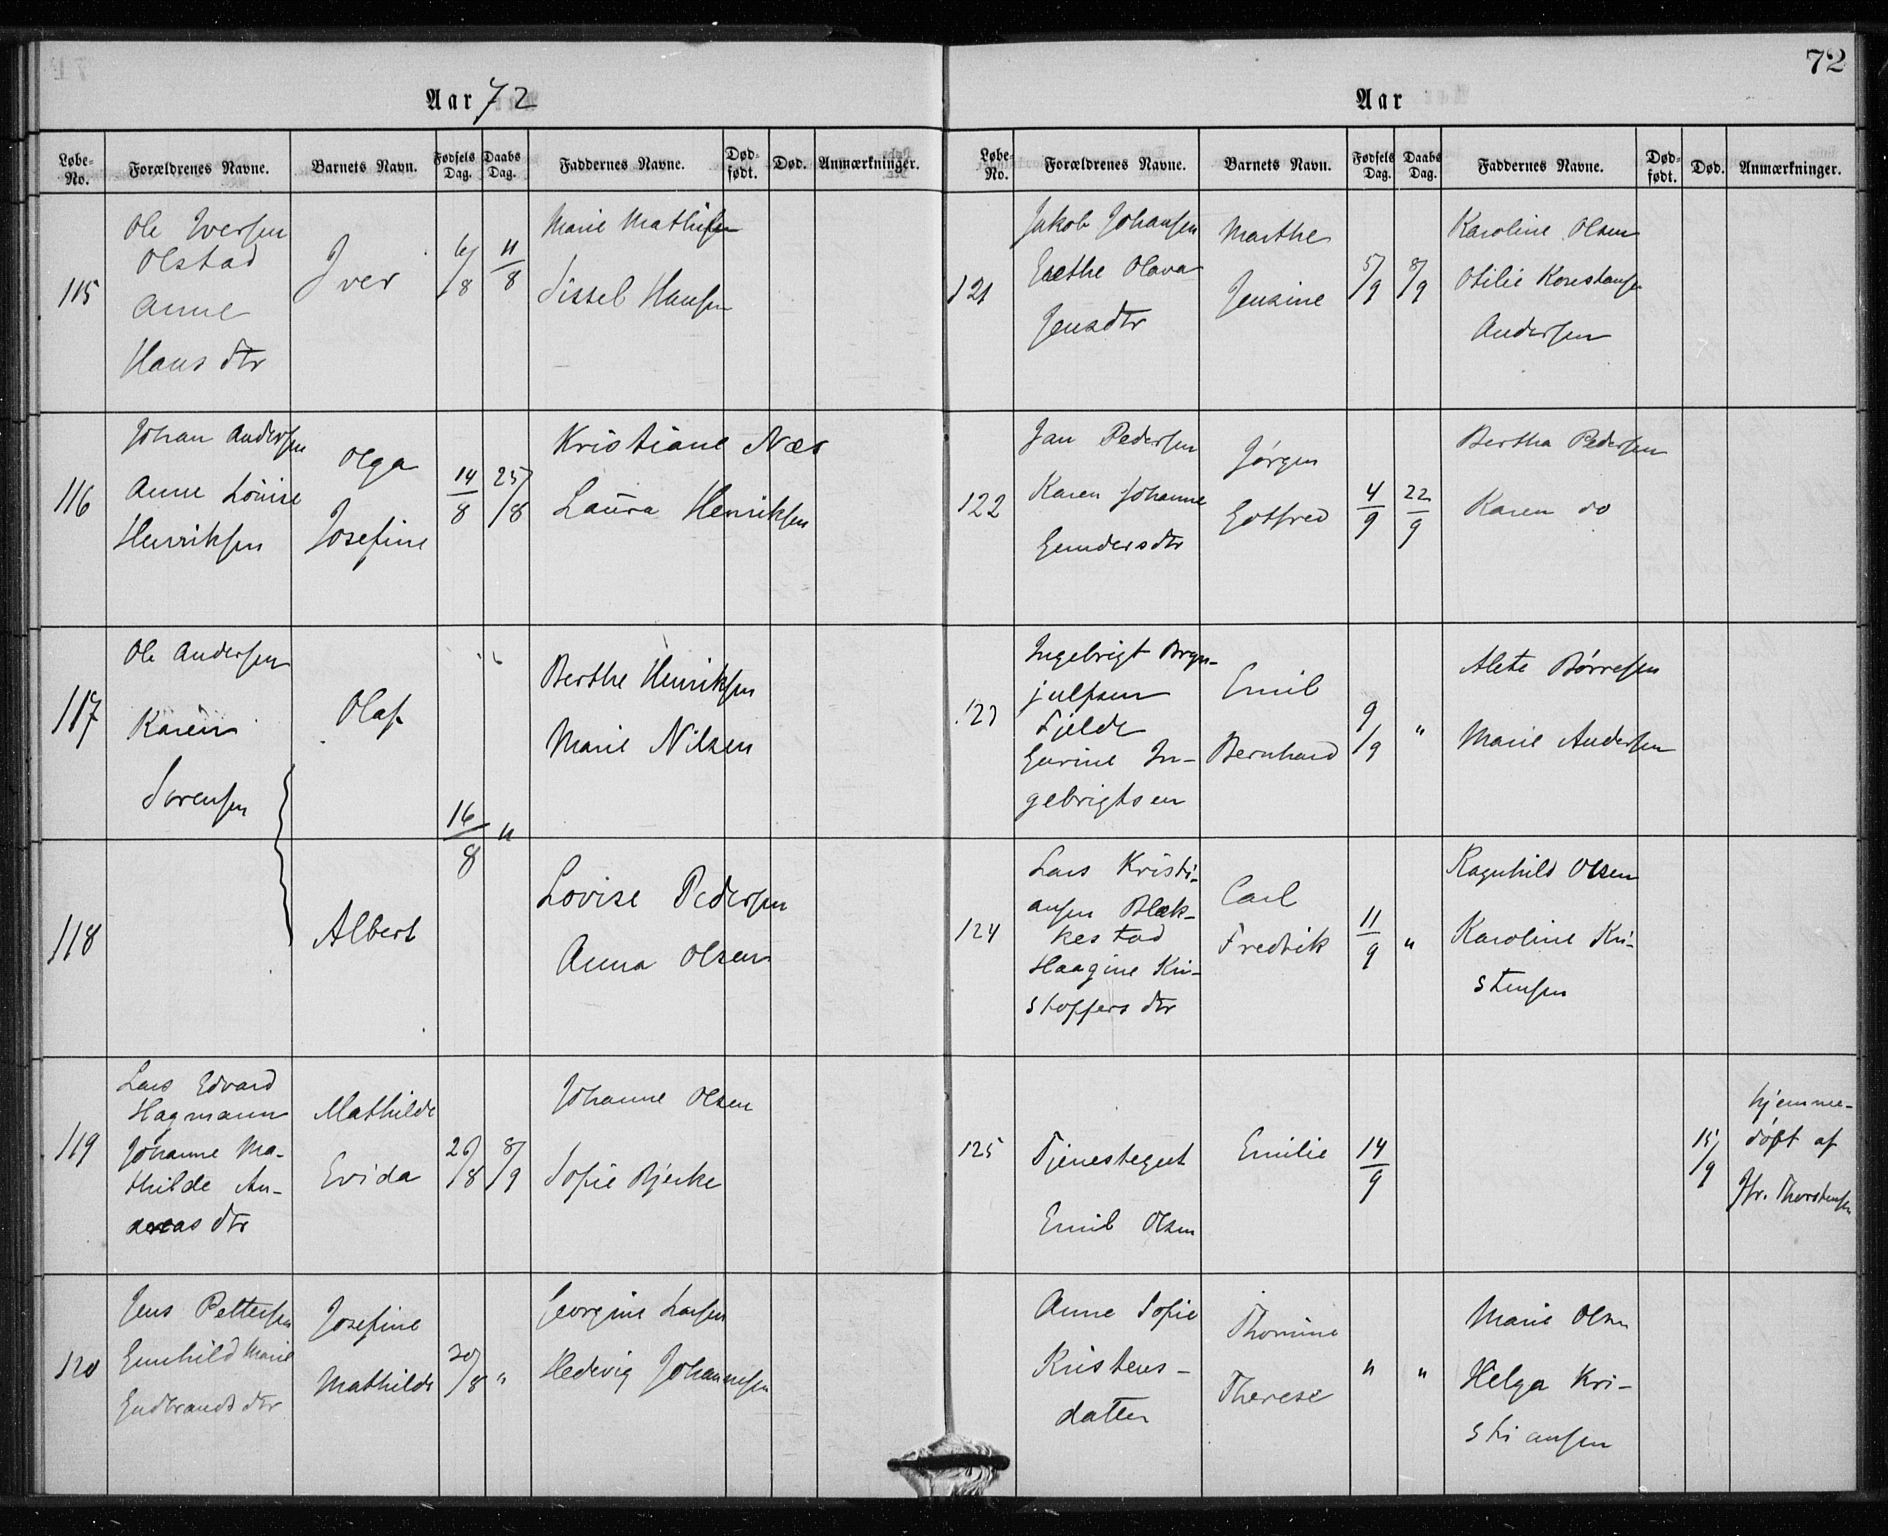 72
Aar 72
Løbe-No. Forældrenes Navne. Barnets Navn. Fødsels Dag. Daabs Dag. Faddernes Navne. Død-født. Død. Anmærkninger.
115
Ole Iversen
Olstad
Anne
Hans dtr
Iver
6/8
11/8
Marie Mathisen
Sissel Hansen
116
Johan Andersen
Anne Louise
Henriksen
Olga
Josefine
14/8
25/8
Kristiane Næs
Laura Henriksen
117
Ole Andersen
Karen
Sorensen
Olaf
16/8
"
Berthe Henriksen
Marie Nilsen
118
Albert
Lovise Pedersen
Anna Olsen
119
Lars Edvard
Hagmann
Johanne Ma-
thilde An-
dreas dtr
Mathilde
Evida
26/8
8/9
Johanne Olsen
Sofie Bjerke
120
Jens Pettersen
Gunhild Marie
Gudbrands dtr
Josefine
Mathilde
30/8
"
Georgine Larsen
Hedevig Johannesen
Aar
Løbe-No. Forældrenes Navne. Barnets Navn. Fødsels Dag. Daabs Dag. Faddernes Navne. Død-født. Død. Anmærkninger.
121
Jakob Johansen
Olava
Jensdtr
Marthe
Jensine
5/9
8/9
Karoline Olsen
Otilie Konstanse
Andersen
122
Jan Pedersen
Karen Johanne
Gundersdtr
Jørgen
Gotfred
4/9
22/9
Bertha Pedersen
Karen do
123
Ingebrigt Bryn-
julfsen
Fjelde
Gurine In-
gebrigtsen
Emil
Bernhard
9/9
"
Alete Børresen
Marie Andersen
124
Lars Kristi-
ansen Blæk-
kestad
Haagine Kri-
stoffers dtr
Carl
Fredrik
11/9
"
Ragnhild Olsen
Karoline Kri-
stensen
125
Tjenestegut
Emil Olsen
Emilie
14/9
15/9
hjemme-
døbt af
Jfr. Thorstensen
Anne Sofie
Kristens-
datter
Thomine
Therese
"
"
Marie Olsen
Helga Kri-
stiansen